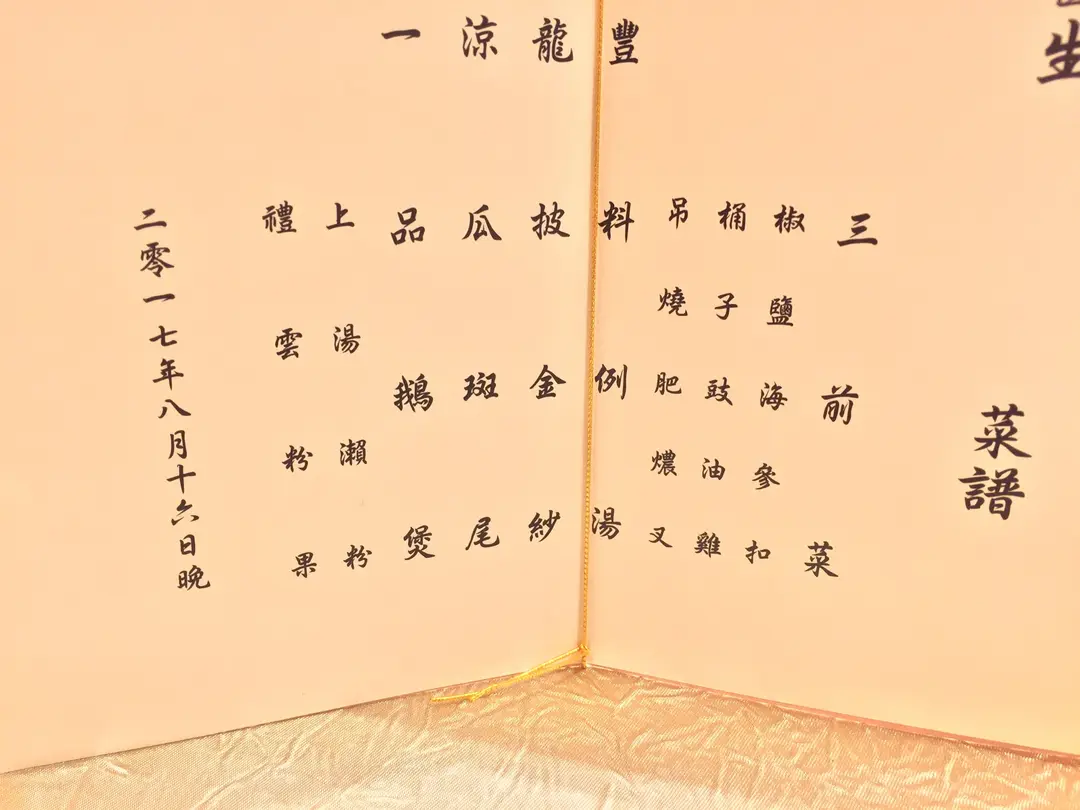 生
菜譜
三前菜
椒鹽海參扣
桶子豉油雞
吊燒肥燶叉
豐料例湯
龍披金紗
涼瓜斑尾
一品鵝煲
上湯瀨粉
禮雲粉果
二零一七年八月十六日晚